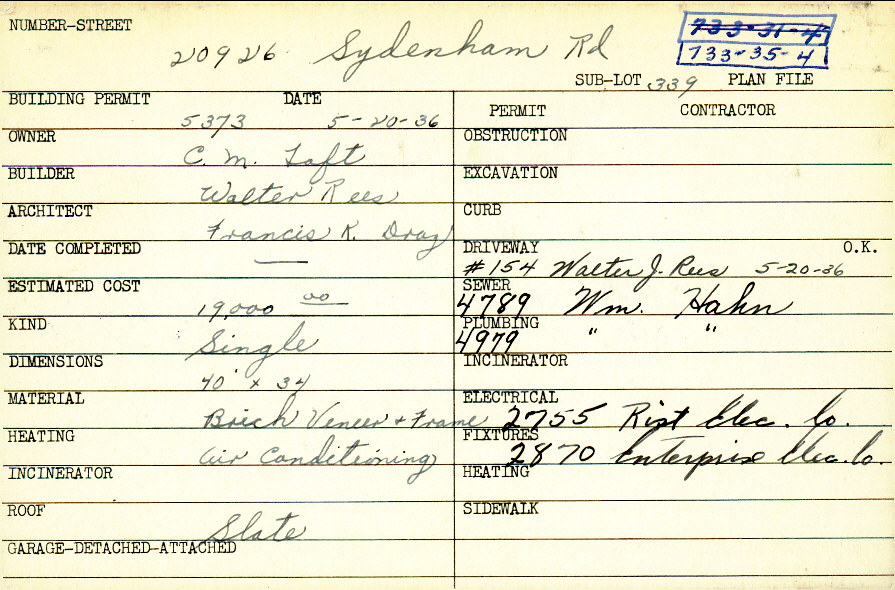 NUMBER-STREET
20926 Sydenham Rd
733-31-4
733-35-4
SUB-LOT 339 PLAN FILE
BUILDING PERMIT DATE
5373 5-20-36
OWNER
C. M. Taft
BUILDER
Walter Rees
ARCHITECT
Francis K. Draz
DATE COMPLETED
—
ESTIMATED COST
19,000 00
KIND
Single
DIMENSIONS
40' x 34
MATERIAL
Brick Veneer + Frame
HEATING
Air Conditioning
INCINERATOR
ROOF
Slate
GARAGE-DETACHED-ATTACHED
PERMIT CONTRACTOR
OBSTRUCTION
EXCAVATION
CURB
DRIVEWAY O.K.
#154 Walter J. Rees 5-20-36
SEWER
4789 Wm. Hahn
PLUMBING
4979 " "
INCINERATOR
ELECTRICAL
2755 Rist Elec. Co.
FIXTURES
2870 Enterprise Elec. Co.
HEATING
SIDEWALK